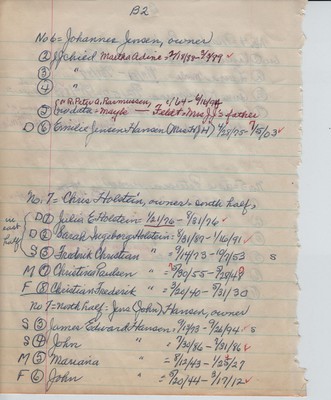 B2
No 6 = Johannes Jensen, owner
② 1 child Martha Adina = 2/18/89 - 3/9/89 ✓
③ "
④ "
"R. Peter A. Rasmussen, 1/64 - 9/10/94
⑤ no data = Maybe — Feldt = Mrs. J.J's father
D ⑥ Emilie Jensen Hansen (Mrs. H.H) 4/25/75 - 7/15/03 ✓
No. 7 = Chris Holstein, owner's south half,
in east half
D ① Julia E Holstein = 1/21/76 - 8/21/76 ✓
D ② Sarah Ingeborg Holstein = 8/31/87 - 1/16/91 ✓
S ③ Fredrik Christian " = 9/14/73 - 9/7/53 S
M ④ Christina Paulsen " = 9/30/55 - 9/28/49
F ⑤ Christian Frederik " = 3/26/40 - 5/31/30
No 7 = north half = Jens (John) Hansen, owner
S ③ James Edward Hansen = 9/17/93 - 7/26/94 ✓ S
S ④ John " = 7/30/86 - 3/31/86 ✓
M ⑤ Mariana " = 8/12/43 - 1/23/27
F ⑥ John " = 5/20/44 - 3/17/12 ✓